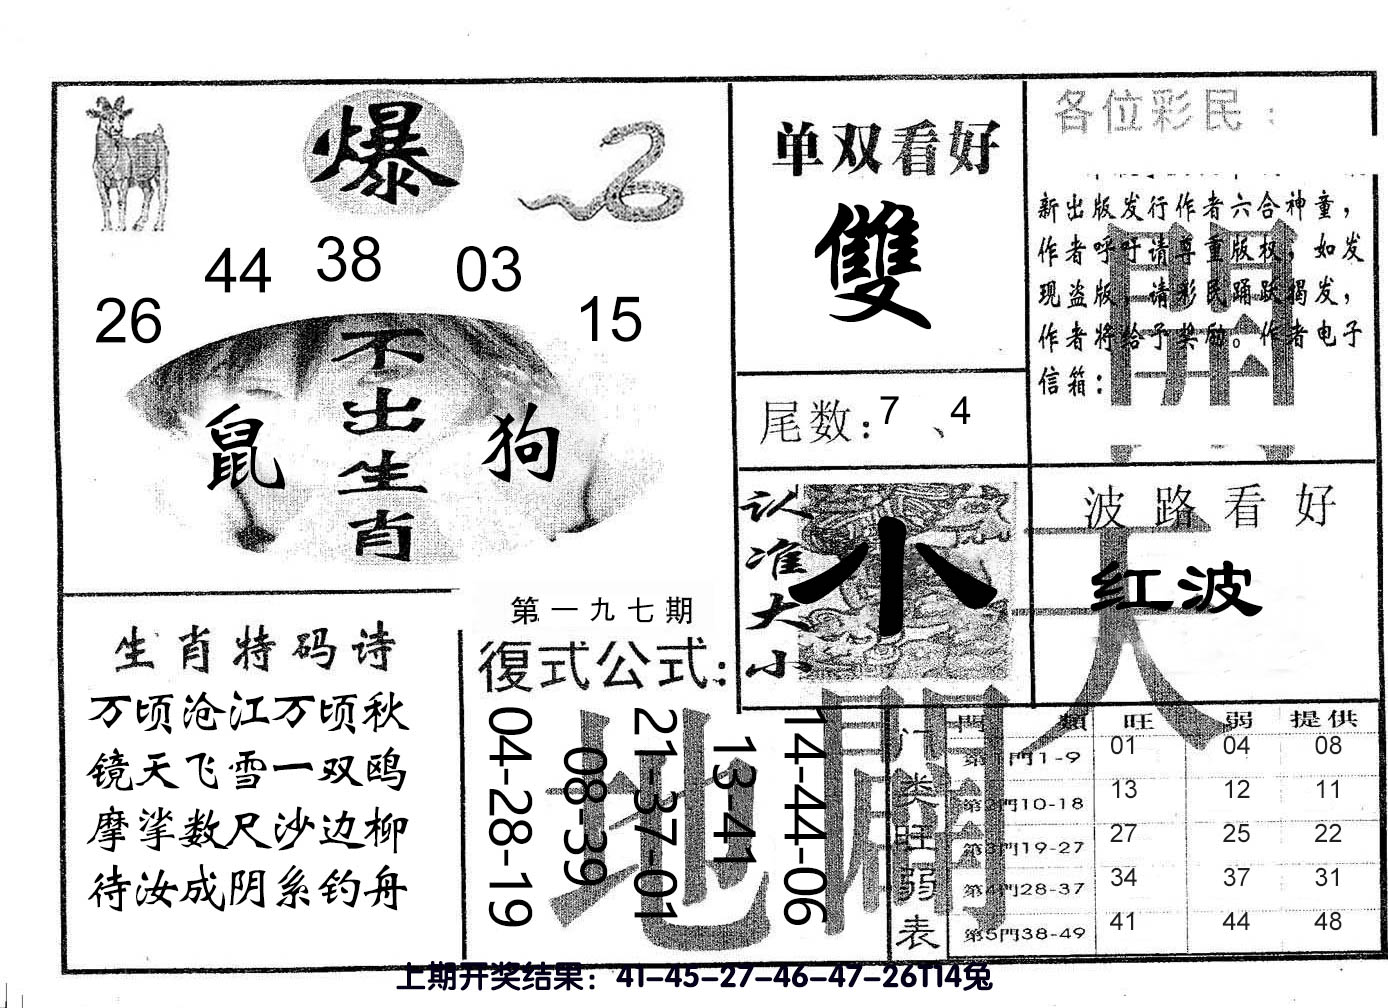 爆
44 38 03
26 15
不出生肖
鼠 狗
生肖特码诗
万顷沧江万顷秋
镜天飞雪一双鸥
摩挲数尺沙边柳
待汝成阴系钓舟
第一九七期
復式公式:
04-28-19
08-39
21-37-01
13-41
14-44-06
单双看好
雙
尾数:7、4
认准大小
小
各位彩民:
新出版发行作者六合神童,
作者呼吁请尊重版权,如发
现盗版,请彩民踊跃揭发,
作者将给予奖励。作者电子
信箱:
波路看好
红波
天
開
地
門類 旺 弱 提供
门类旺弱表
第1門1-9 01 04 08
第2門10-18 13 12 11
第3門19-27 27 25 22
第4門28-37 34 37 31
第5門38-49 41 44 48
上期开奖结果:41-45-27-46-47-26T14兔